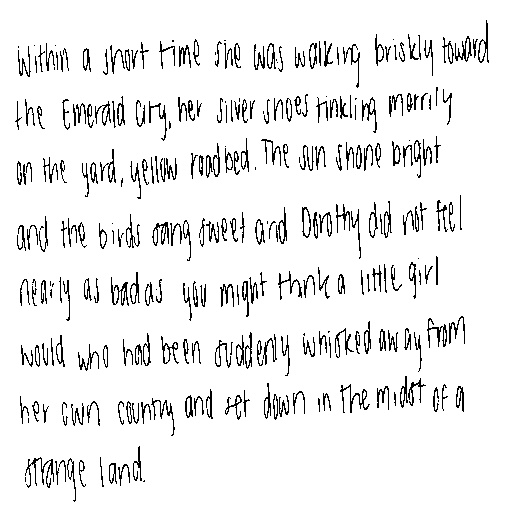 Within a short time she was walking briskly toward
the Emerald City, her silver shoes tinkling merrily
on the yard, yellow roadbed. The sun shone bright
and the birds sang sweet and Dorothy did not feel
nearly as bad as you might think a little girl
would who had been suddenly whisked away from
her own country and set down in the midst of a
strange land.